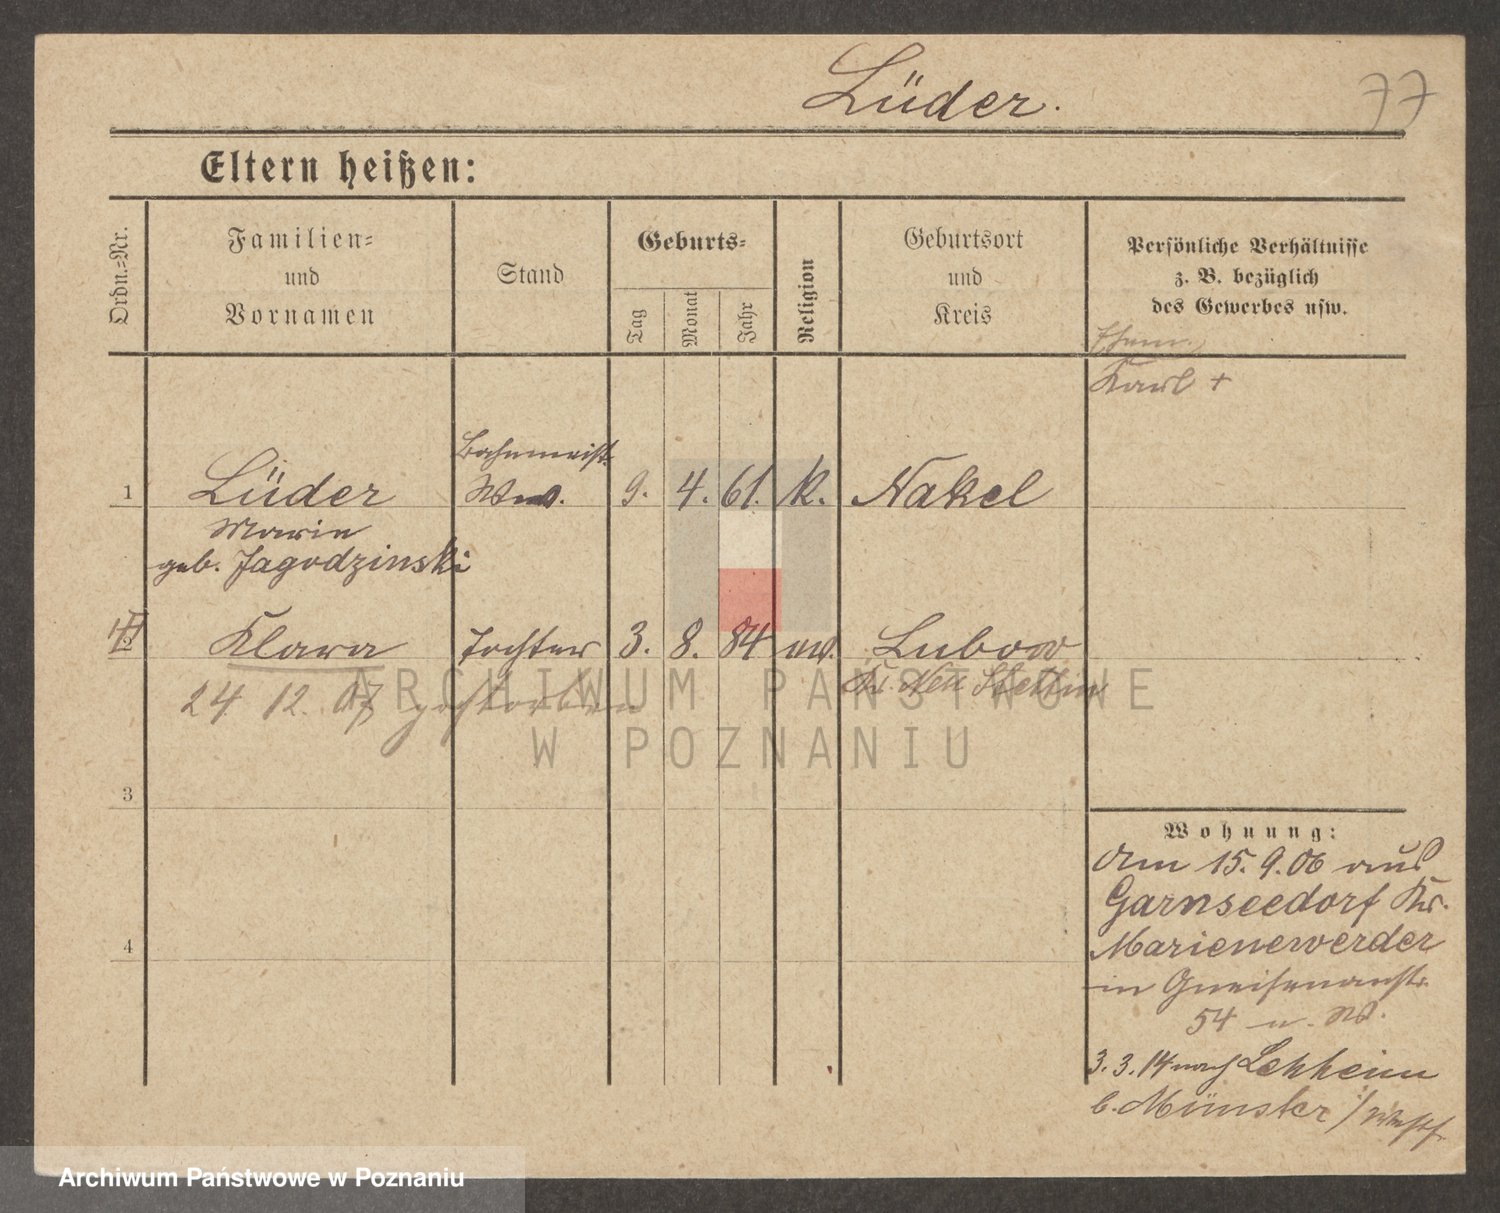 Lüder.
77
Eltern heißen:
Ordn.-Nr.
Familien-
und
Vornamen
Stand
Geburts-
Tag
Monat
Jahr
Religion
Geburtsort
und
Kreis
Persönliche Verhältnisse
z. B. bezüglich
des Gewerbes usw.
Ehem.
Karl +
1
Lüder
Marie
geb. Jagodzinski
Bahnmeist.
Ww.
9. 4. 61. k. Nakel
2
Klara
Tochter 3. 8. 84 Lubow
Kr. Neu Stettin
24. 12. 07 gestorben
3
4
Wohnung:
Am 15. 9. 06 aus
Garnseedorf Kr.
Marienewerder
in Gneisenaustr.
54 u. W.
3. 3. 14 nach
b. Münster /
ARCHIWUM PAŃSTWOWE
W POZNANIU
Archiwum Państwowe w Poznaniu